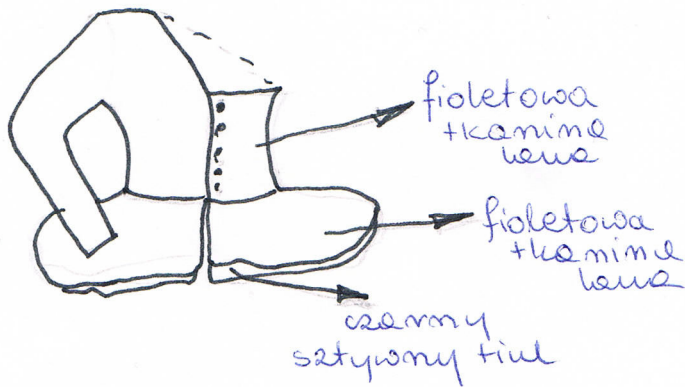 fioletowa
tkanina
fioletowa
tkanina
czarny
sztywny tiul